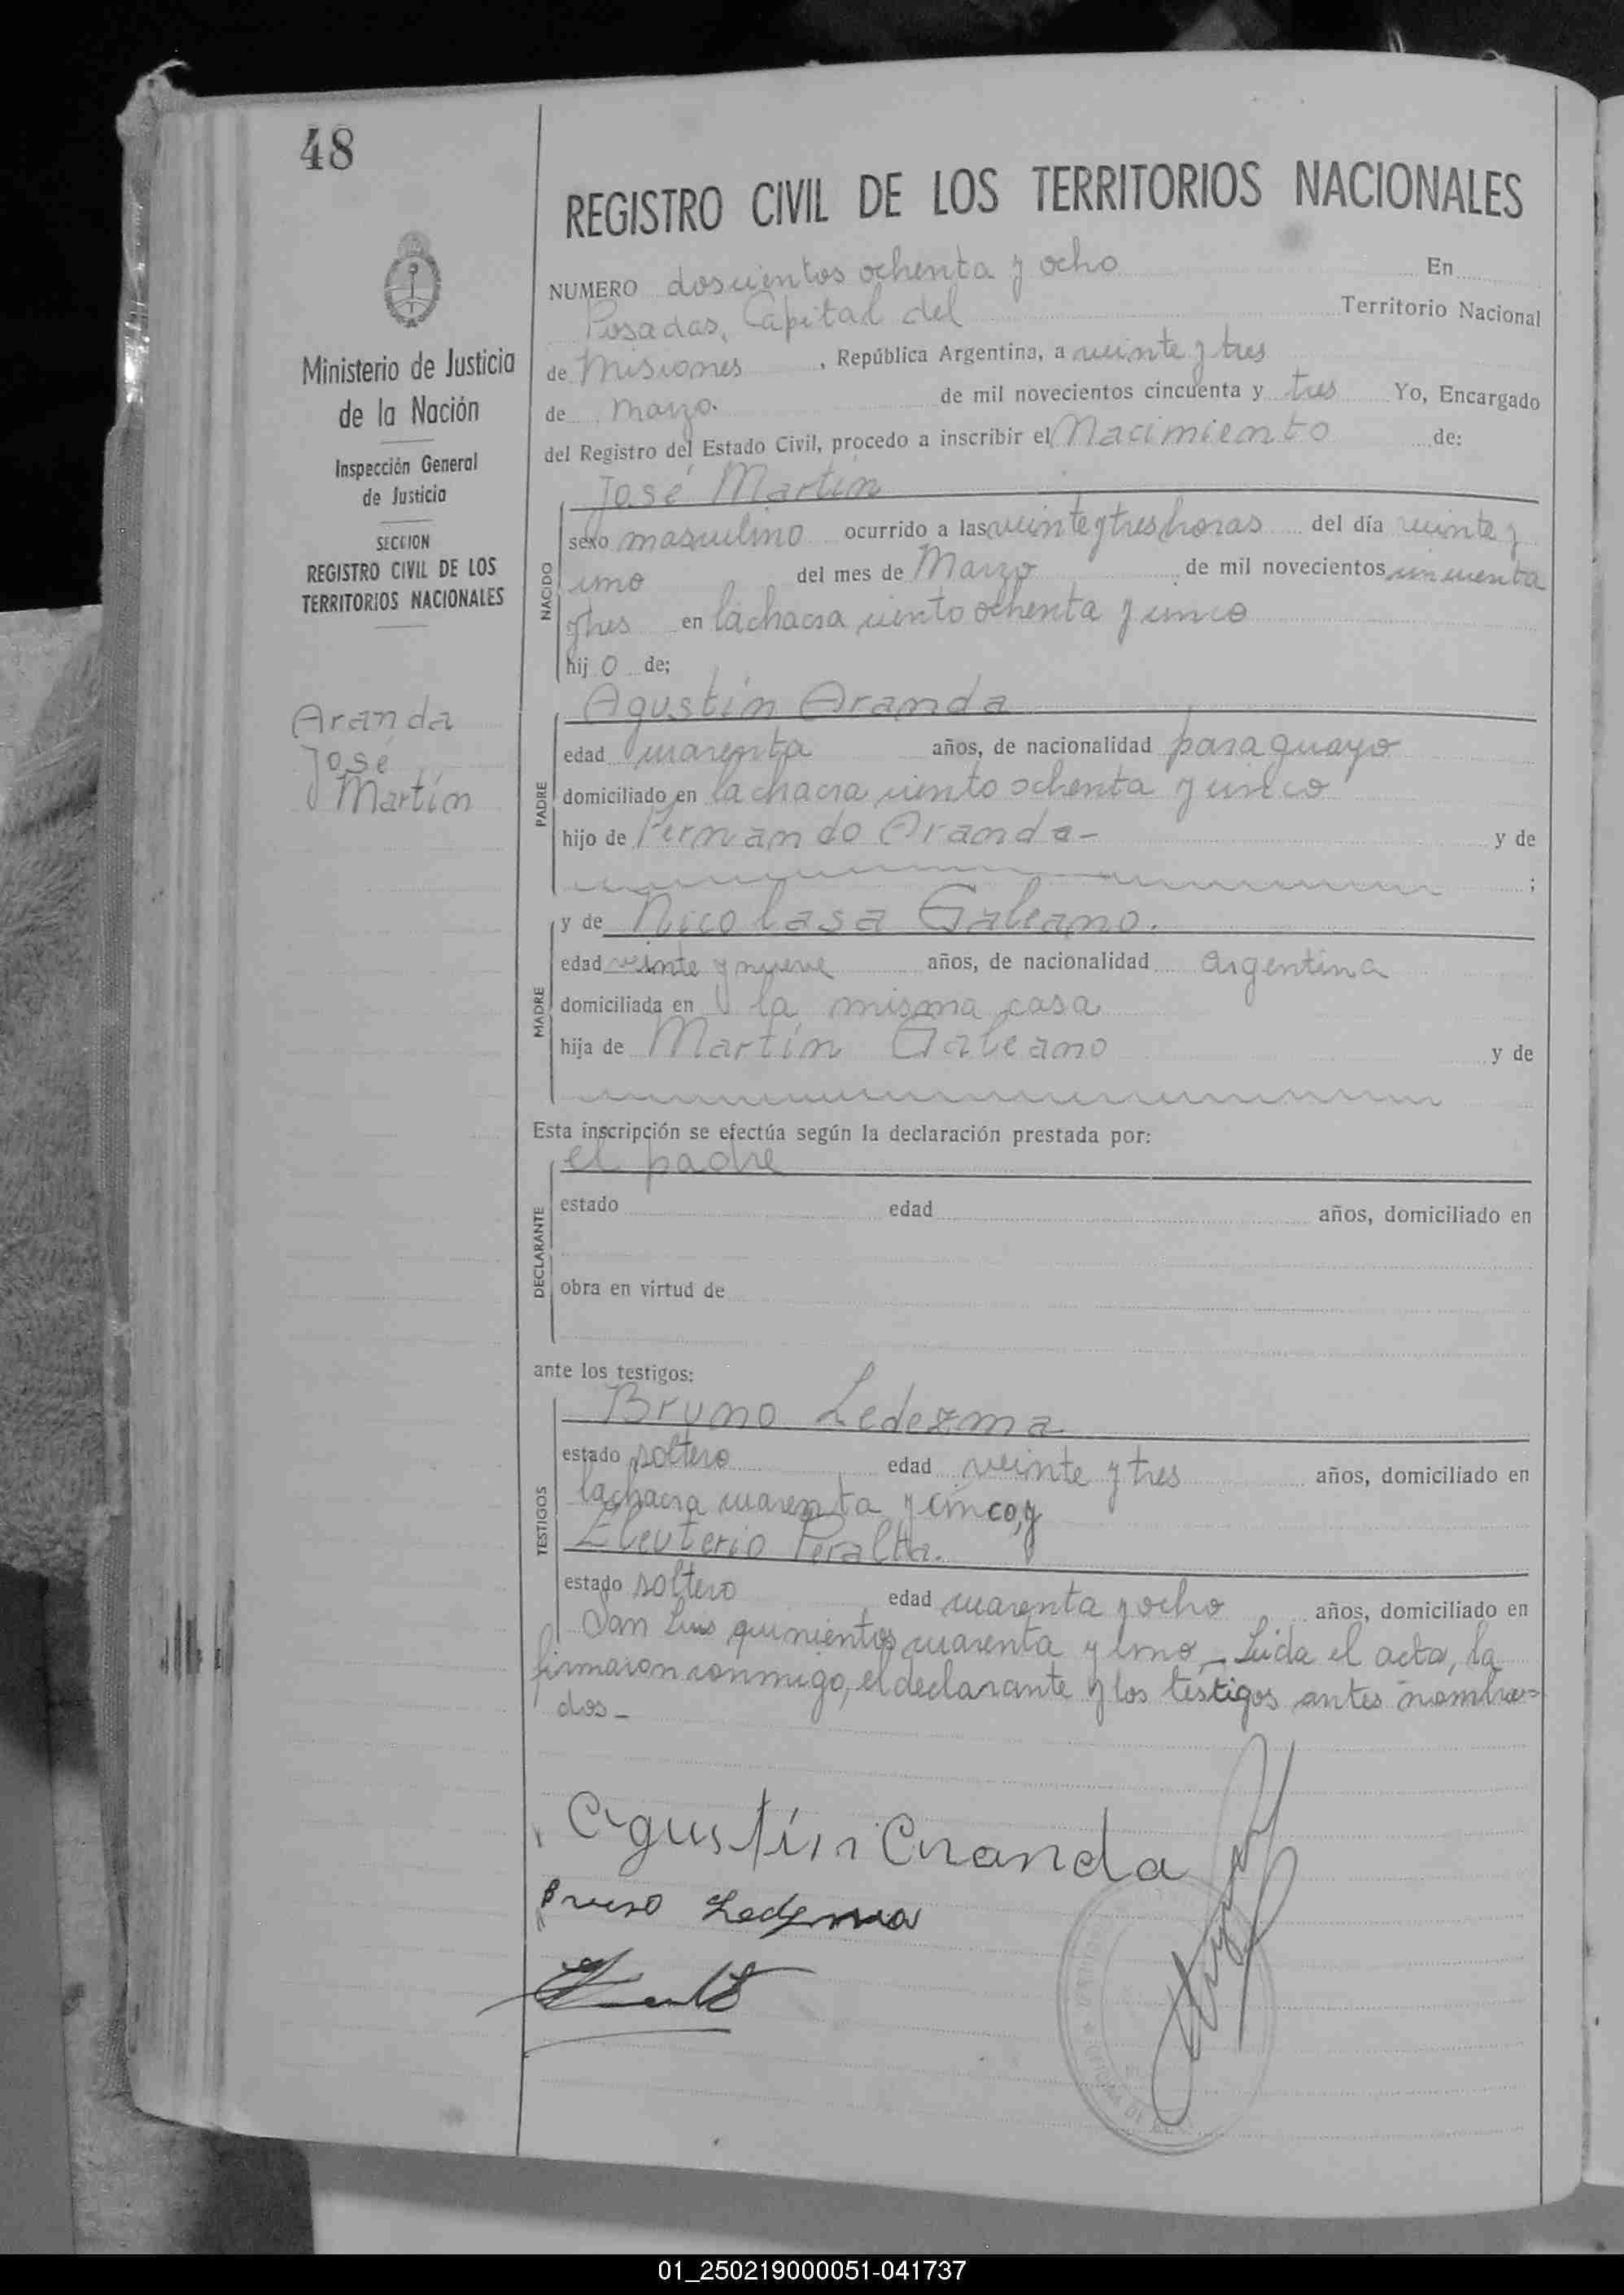 48
REGISTRO CIVIL DE LOS TERRITORIOS NACIONALES
NUMERO doscientos ochenta y ocho En
Posadas, Capital del Territorio Nacional
de Misiones, República Argentina, a veinte y tres
de Marzo. de mil novecientos cincuenta y tres Yo, Encargado
del Registro del Estado Civil, procedo a inscribir el Nacimiento de:
Ministerio de Justicia
de la Nación
Inspección General
de Justicia
SECCION
REGISTRO CIVIL DE LOS
TERRITORIOS NACIONALES
Aranda
José
Martín
NACIDO
José Martín
sexo masculino ocurrido a las veinte y tres horas del día veinte y
uno del mes de Marzo de mil novecientos cincuenta
y tres en la chacra ciento ochenta y cinco
hijo de;
PADRE
Agustín Aranda
edad cuarenta años, de nacionalidad paraguayo
domiciliado en la chacra ciento ochenta y cinco
hijo de Fernando Aranda- y de
;
MADRE
y de Nicolasa Galeano.
edad veinte y nueve años, de nacionalidad argentina
domiciliada en la misma casa
hija de Martín Galeano y de
Esta inscripción se efectúa según la declaración prestada por:
DECLARANTE
el padre
estado edad años, domiciliado en
obra en virtud de
ante los testigos:
TESTIGOS
Bruno Ledezma
estado soltero edad veinte y tres años, domiciliado en
la chacra cuarenta y cinco, y
Eleuterio Peralta.
estado soltero edad cuarenta y ocho años, domiciliado en
San Luis quinientos cuarenta y uno_ Leida el acta, la
firmaron conmigo, el declarante y los testigos antes nombra=
dos_
Agustín Aranda
Bruno Ledezma
01_250219000051-041737